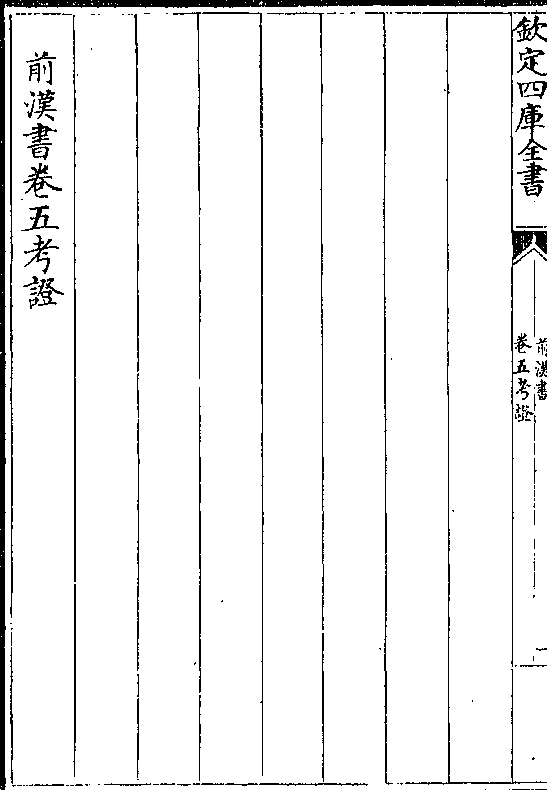 欽定四庫全書
前漢書
卷五考證
前漢書卷五考證